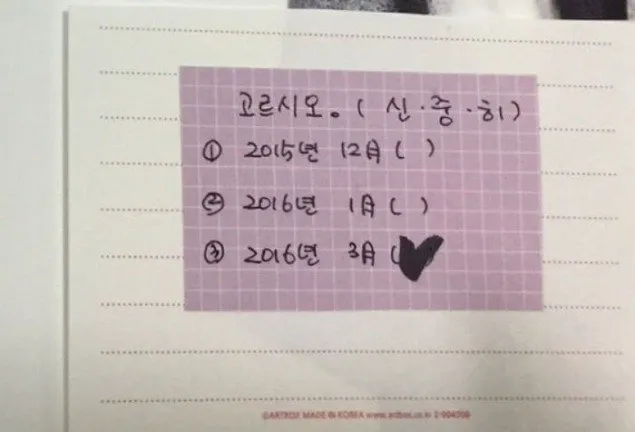 고르시오。( 신·중·히)
① 2015년 12月 ( )
② 2016년 1月 ( )
③ 2016년 3月 (♥)
©ARTBOX MADE IN KOREA www.artbox.co.kr